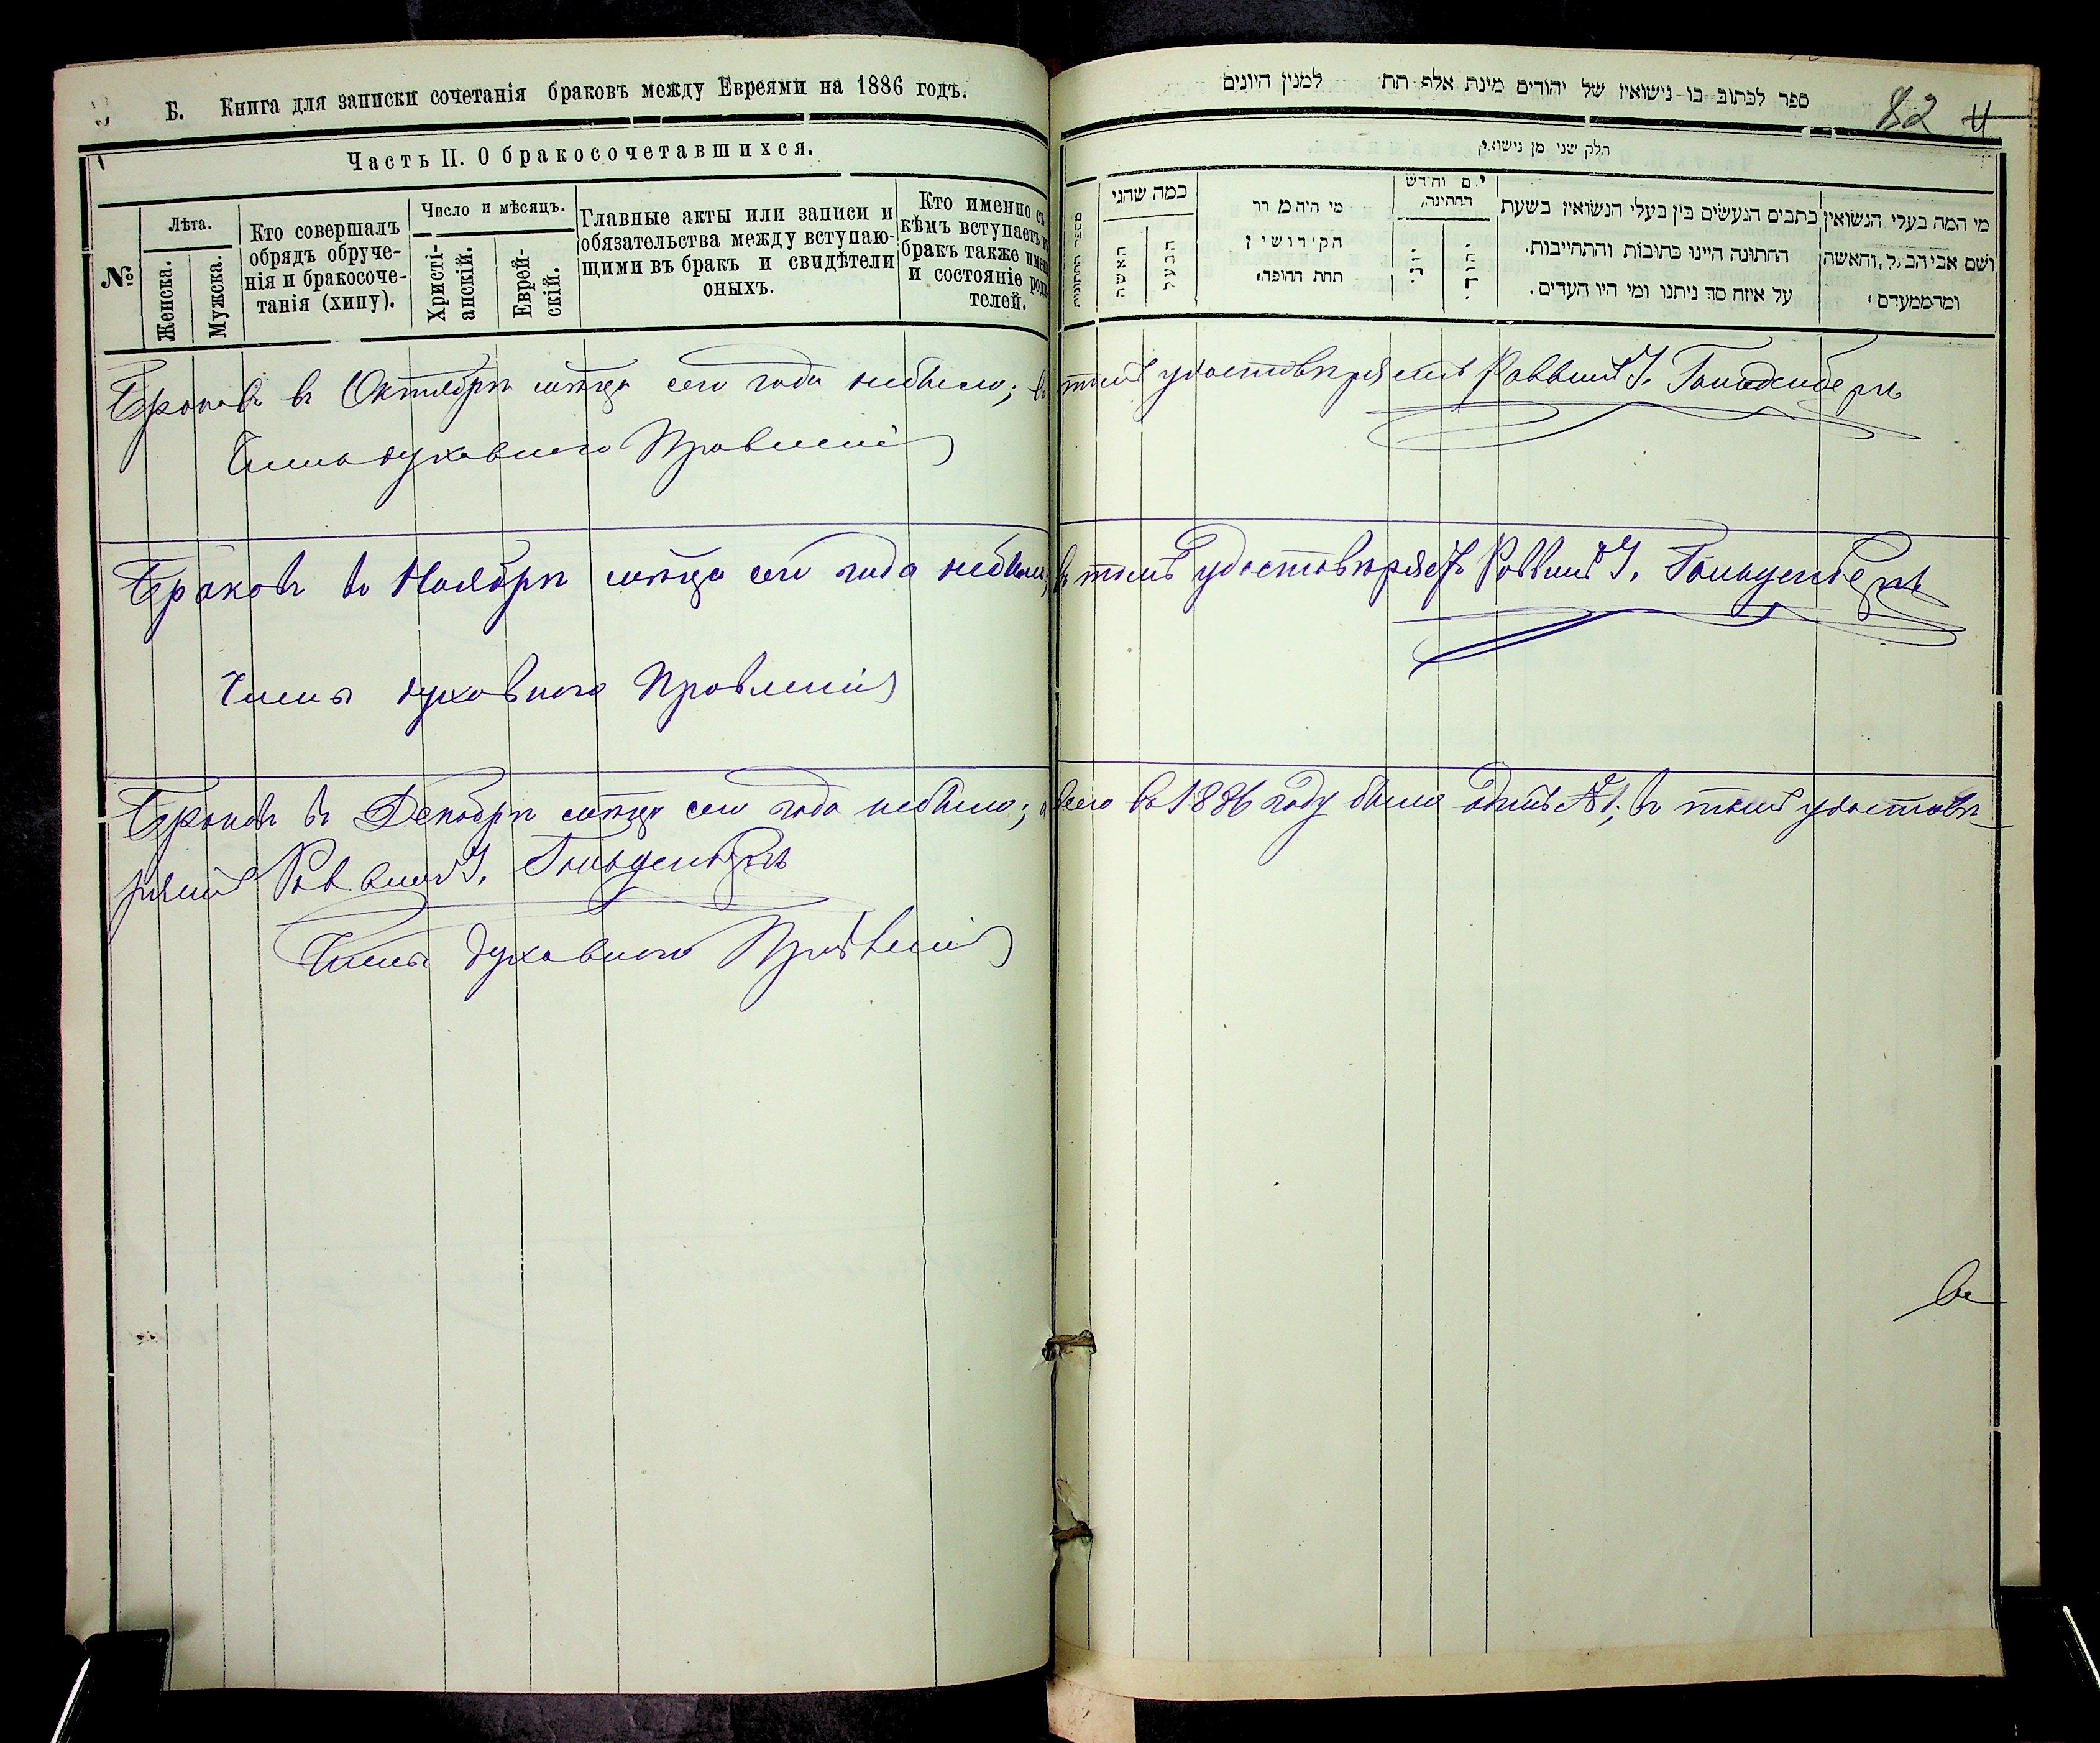 Б. Книга для записки сочетанія браковъ между Евреями на 1886 годъ.
Часть II. О бракосочетавшихся.
№
Лѣта.
Женска.
Мужска.
Кто совершалъ
обрядъ обруче-
нія и бракосоче-
танія (хипу).
Число и мѣсяцъ.
Христі-
анскій.
Еврей-
скій.
Главные акты или записи и
обязательства между вступаю-
щими въ бракъ и свидѣтели
оныхъ.
Кто именно съ
кѣмъ вступаетъ
бракъ также
и состояніе
телей.
Браковъ въ Октябрѣ мѣсяцѣ сего года небыло; въ томъ удостовѣряетъ Раввинъ И. Гольденбергъ
Члены духовного Правленія
Браковъ въ Ноябрѣ мѣсяцѣ сего года небыло; въ томъ удостовѣряетъ Раввинъ И. Гольденбергъ
Члены духовного Правленія
Браковъ въ Декабрѣ мѣсяцѣ сего года небыло; а всего въ 1886 году было одинъ №1; въ томъ удостовѣ-
ряетъ Раввинъ И. Гольденбергъ
Члены духовного Правленія
ספר לכתוב בו נישואין של יהודים מינת אלף תת למנין היונים
82
חלק שני מן נישואין
מספר החתונות
כמה שהני
האשה
הבעל
מי היה מ דר
הקידושין
תחת החופה
יום וחדש
החתונה,
יוני
יהודי
כתבים הנעשים בין בעלי הנשואין בשעת
החתונה היינו כתובות והתחייבות.
על איזה סך ניתנו ומי היו העדים.
מי המה בעלי הנשואין
ושם אבי הבעל, והאשה
ומהמעמדם